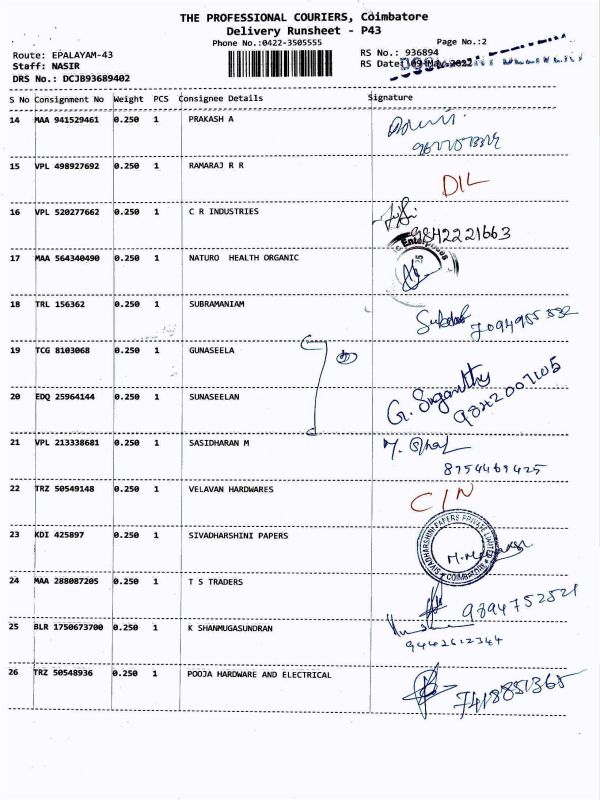 THE PROFESSIONAL COURIERS, Coimbatore
Delivery Runsheet - P43
Phone No.:0422-3505555
Page No.:2
Route: EPALAYAM-43
RS No.: 936894
Staff: NASIR
RS Date: 09-May-2022
DRS No.: DCJB93689402
S No Consignment No Weight PCS Consignee Details Signature
14 MAA 941529461 0.250 1 PRAKASH A
15 VPL 498927692 0.250 1 RAMARAJ R R DIL
16 VPL 520277662 0.250 1 C R INDUSTRIES
9842221663
17 MAA 564340490 0.250 1 NATURO HEALTH ORGANIC
18 TRL 156362 0.250 1 SUBRAMANIAM
19 TCG 8103068 0.250 1 GUNASEELA
20 EDQ 25964144 0.250 1 SUNASEELAN G. Suganthy
9842007105
21 VPL 213338681 0.250 1 SASIDHARAN M
8754469425
22 TRZ 50549148 0.250 1 VELAVAN HARDWARES C/N
23 KDI 425897 0.250 1 SIVADHARSHINI PAPERS
SIVADHARSHINI PAPERS PRIVATE LIMITED
COIMBATORE
24 MAA 288087205 0.250 1 T S TRADERS
9894752521
25 BLR 1750673700 0.250 1 K SHANMUGASUNDRAN
9442612344
26 TRZ 50548936 0.250 1 POOJA HARDWARE AND ELECTRICAL
7418851365